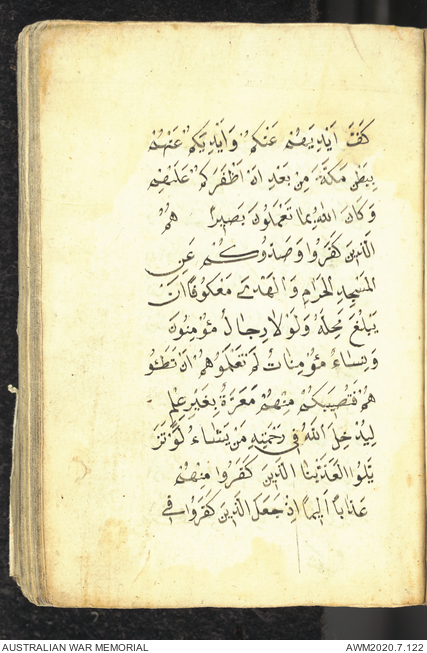 كَفَّ اَيْدِيَهُمْ عَنْكُمْ وَاَيْدِيَكُمْ عَنْهُمْ
بِبَطْنِ مَكَّةَ مِنْ بَعْدِ اَنْ اَظْفَرَكُمْ عَلَيْهِمْ
وَكَانَ اللّٰهُ بِمَا تَعْمَلُونَ بَصِيراً هُمُ
الَّذِينَ كَفَرُوا وَصَدُّوكُمْ عَنِ
المَسْجِدِ الحَرَامِ وَالهَدْىَ مَعْكُوفاً اَنْ
يَبْلُغَ مَحِلَّهُ وَلَوْلَا رِجَالٌ مُؤْمِنُونَ
وَنِسَاءٌ مُؤْمِنَاتٌ لَمْ تَعْلَمُوهُمْ اَنْ تَطَئُو
هُمْ فَتُصِيبَكُمْ مِنْهُمْ مَعَرَّةٌ بِغَيْرِ عِلْمٍ
لِيُدْخِلَ اللّٰهُ فِي رَحْمَتِهِ مَنْ يَشَاءُ لَوْ تَزَ
يَّلُوا لَعَذَّبْنَا الَّذِينَ كَفَرُوا مِنْهُمْ
عَذَاباً اَلِيماً اِذْ جَعَلَ الَّذِينَ كَفَرُوا فِي
AUSTRALIAN WAR MEMORIAL AWM2020.7.122